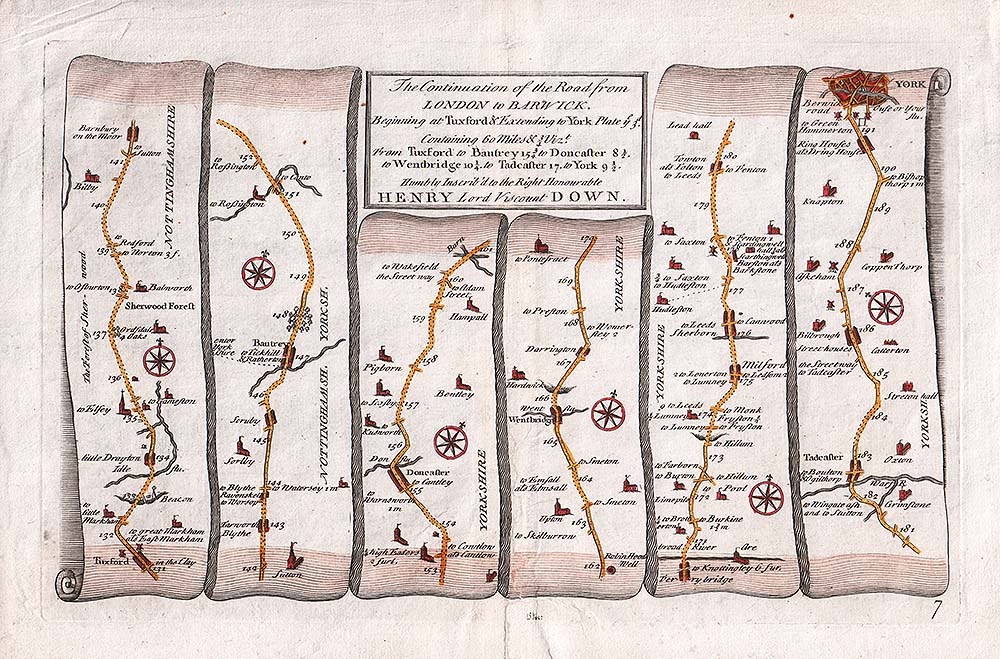 The Continuation of the Road from
LONDON to BARWICK.
Beginning at Tuxford & Extending to York Plate ye 3d.
Containing 60 Miles & ¾ Vizt.
From Tuxford to Bautrey 15¾ to Doncaster 8¼.
to Wentbridge 10¼. to Tadcaster 17. to York 9½.
Humbly Inscrib'd to the Right Honourable
HENRY Lord Viscount DOWN.
Barnbury
on the Moor
to Sutton
141
Bilby
NOTTINGHAMSHIRE
140
to Redford
139
to Morton 3 f.
to Osburton
138
Babworth
Sherwood Forest
137
Ordsdale
4 Oaks
The Forest of Sherwood
136
to Elsey
to Gameston
135
little Drayton
134
Idle
flu.
133
Beacon
to little
Markham
to great Markham
als East Markham
132
Tuxford
in the Clay
131
to Rossington
152
to Canto
151
to Rossington
150
149
148
YORKSH.
enter York Shire
Bautrey
to Tickhill
& Ratherton
147
NOTTINGHAMSH.
146
Scruby
145
Sorlby
144
to Blythe
Ravenshead
to Worsop
to Watersey 1 m
143
Tarworth
Blythe
142
Sutton
Barn
161
to Wakefield
the Street way
160
to Adam
Street
159
Hampall
158
Pigborn
Bentley
157
to Kusworth
156
Don
flu.
Doncaster
to Cantley
155
to Warnsworth
1 m
154
YORKSHIRE
high Eastera
2 furl.
to Cowtlow
als Cantlow
153½
170
to Pontefract
YORKSHIRE
169
to Preston
168
to Womersley 2
Darrington
167
Hardwick
166
Went
flu.
Wentbridg
165
to Smeton
164
to Emfall
als Elmsall
to Smeton
Upton
163
to Skilburrow
162
Robin Hood
Well
Lead hall
180
Towton
als Tolton
to Leeds
to Fenton
179
to Saxton
to Fenton 1
178
hall
Barston als
Barkstone
½ to Saxton
to Hudleston
177
Hudleston
to Leeds
to Cawwood
Sherborn
176
YORKSHIRE
Milford
2 to Lenerton
to Ledsom 2
to Lumney
175
9 to Leeds
Lumney
174
to Monk
Fryston
to Lumney
to Fryston
to Hillum
173
to Farborn
to Burton
to Hillum
Pool
Limepits
172
to Burkine
1½ m
171
brood
River
Are
to Knottingley 6 fur.
Ferry bridge
YORK
Berwick
road
Ouse or Your
flu.
to Green
Hammerton
191
King Houses
als Bring Houses
190
to Bishop
thorp 1 m
Knapton
189
188
Coppenthorp
Askeham
187
186
Bilbrough
Streethouses
Catterton
the Streetway
to Tadcaster
185
Streton hall
184
YORKSH.
Oxton
Tadcaster
183
to Boulton
& Ogilthorp
Warf R.
182
Grimstone
to Wingate ash
and to Stutton
181
7